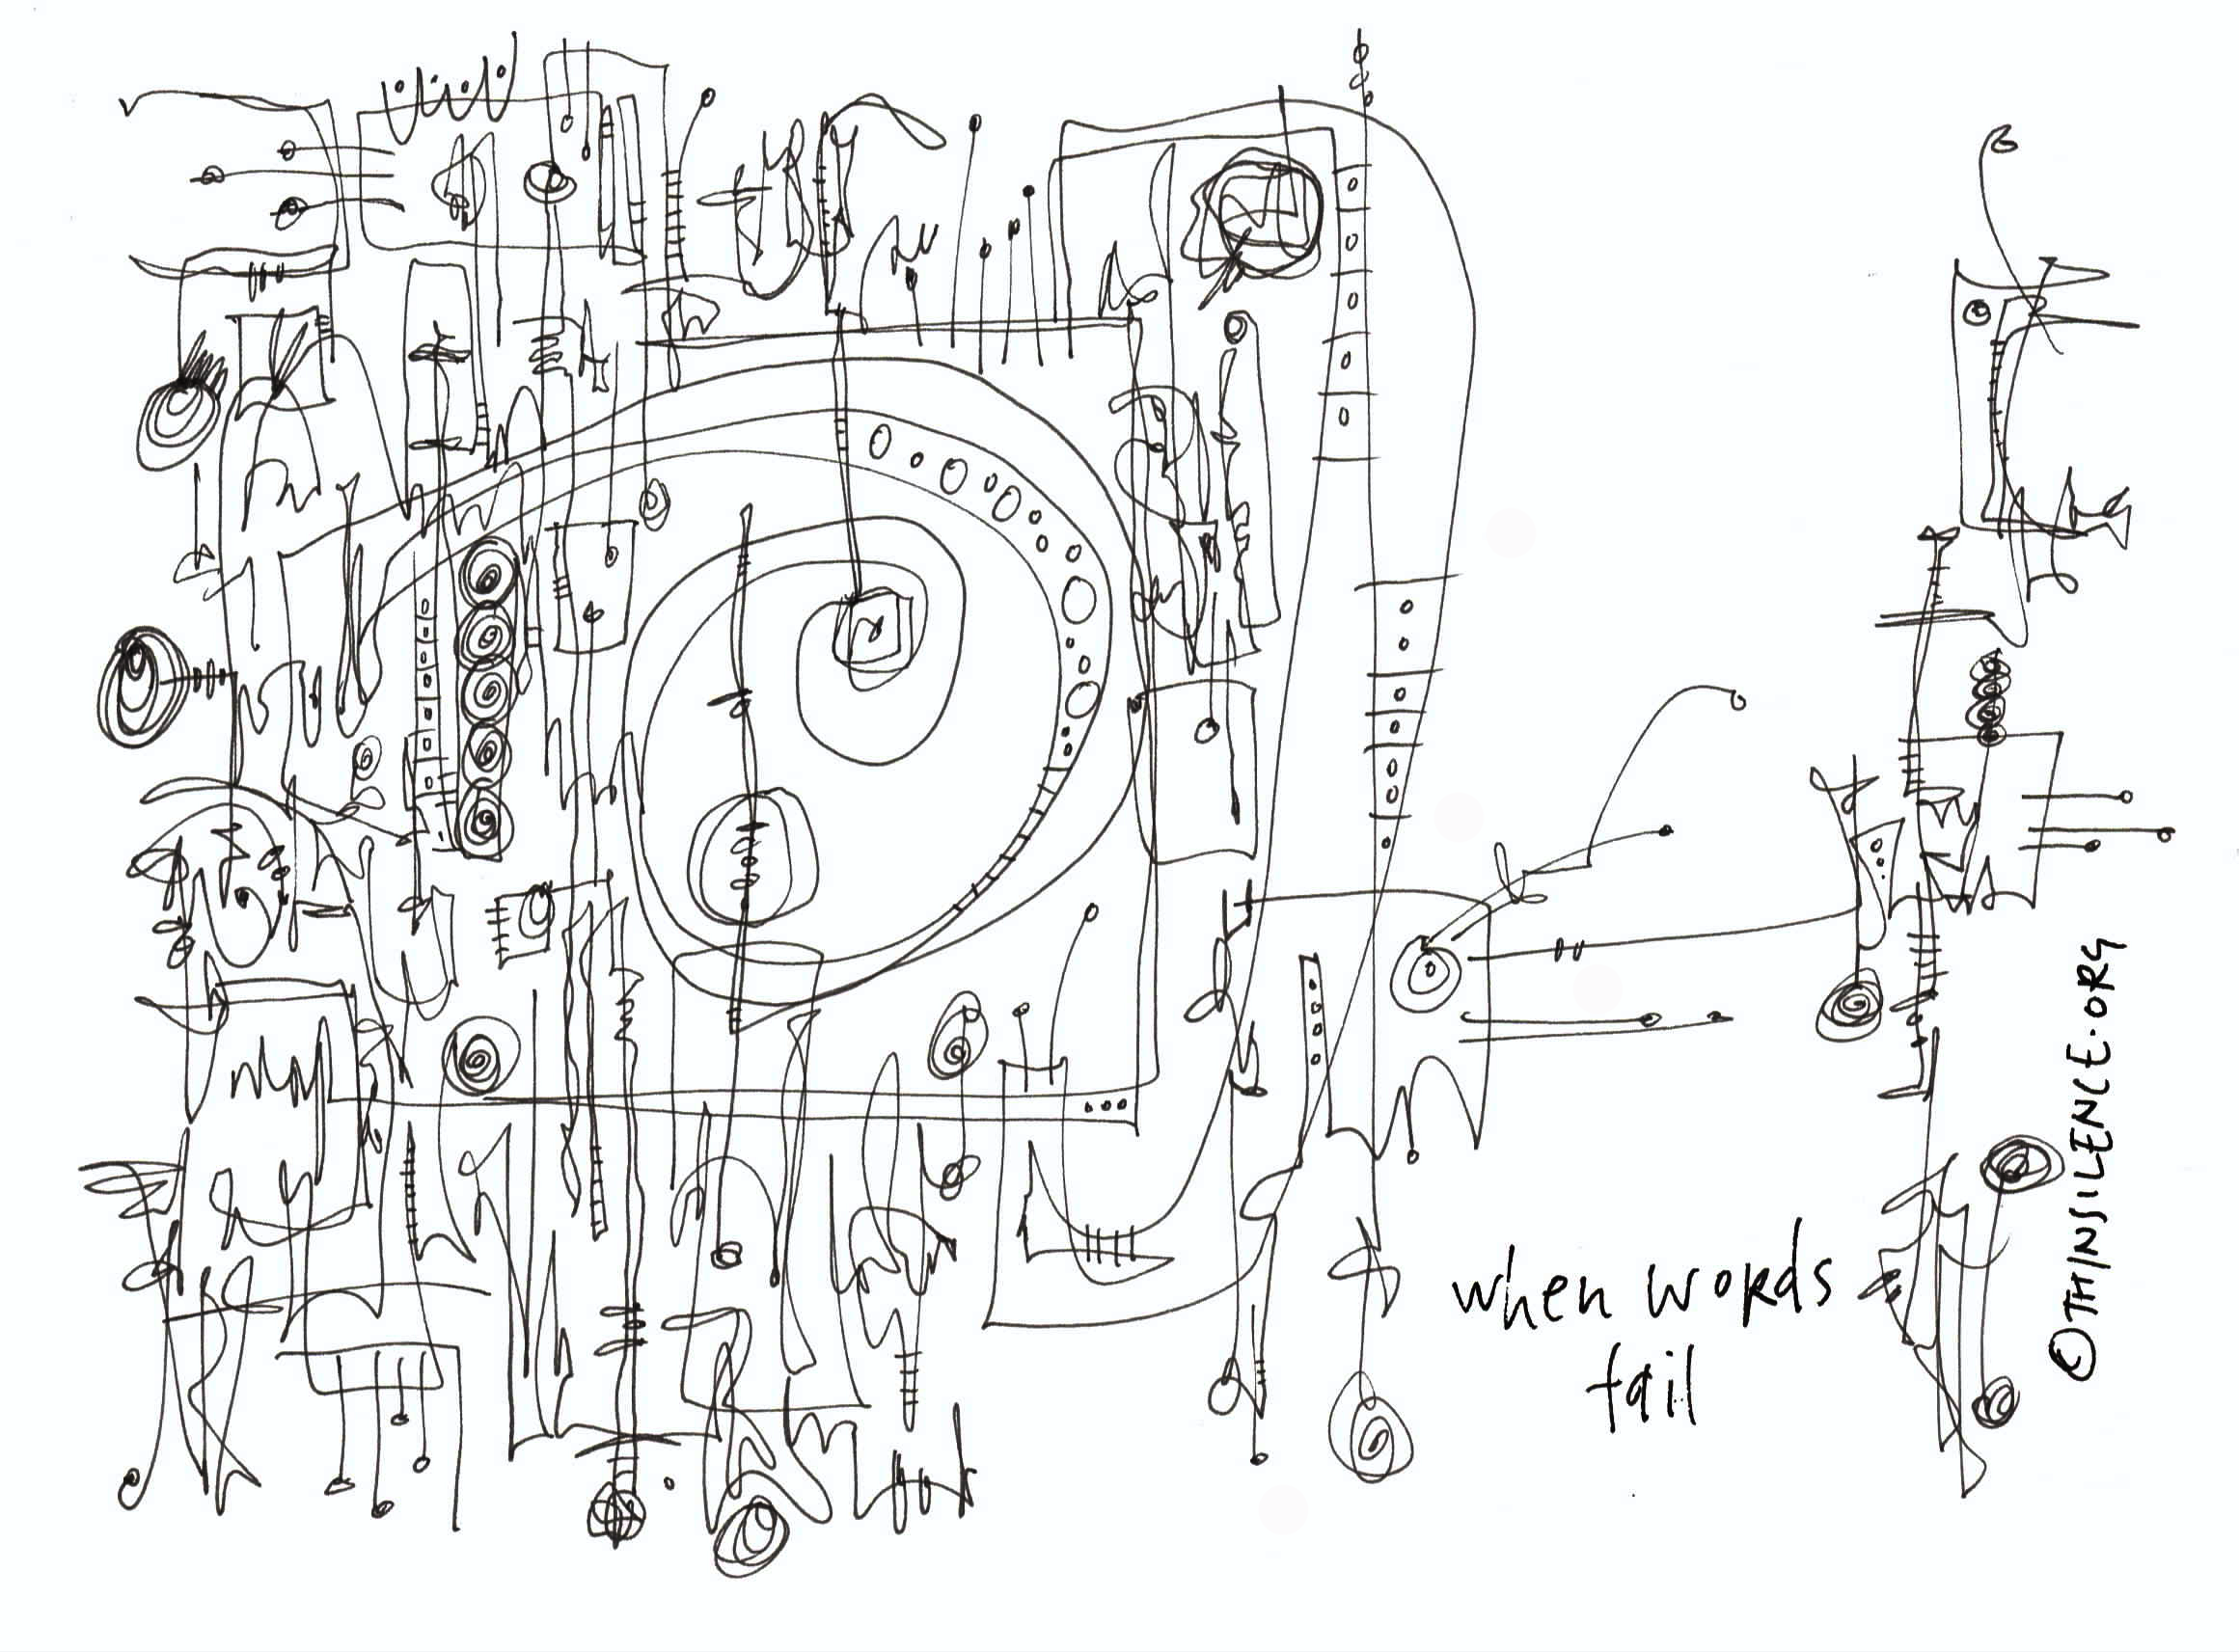 when words
fail
©THINSILENCE.ORG